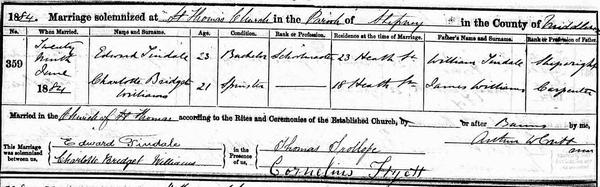 1884. Marriage solemnized at St Thomas Church in the Parish of Stepney in the County of Middlesex
No. When Married. Name and Surname. Age. Condition. Rank or Profession. Residence at the time of Marriage. Father's Name and Surname. Rank or Profession of Father.
359 Twenty Ninth June 1884
Edward Tindale 23 Bachelor Schoolmaster 23 Heath St William Tindale Shipwright
Charlotte Bridget Williams 21 Spinster 18 Heath St James Williams Carpenter
Married in the Church of St Thomas according to the Rites and Ceremonies of the Established Church, by or after Banns by me,
This Marriage was solemnized between us, Edward Tindale Charlotte Bridget Williams in the Presence of us, Thomas Trollope Cornelius